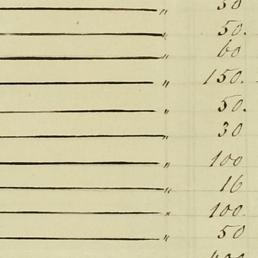 " 50
" 50.
" 60
" 150.
" 50.
" 30
" 100
" 16
" 100.
" 50